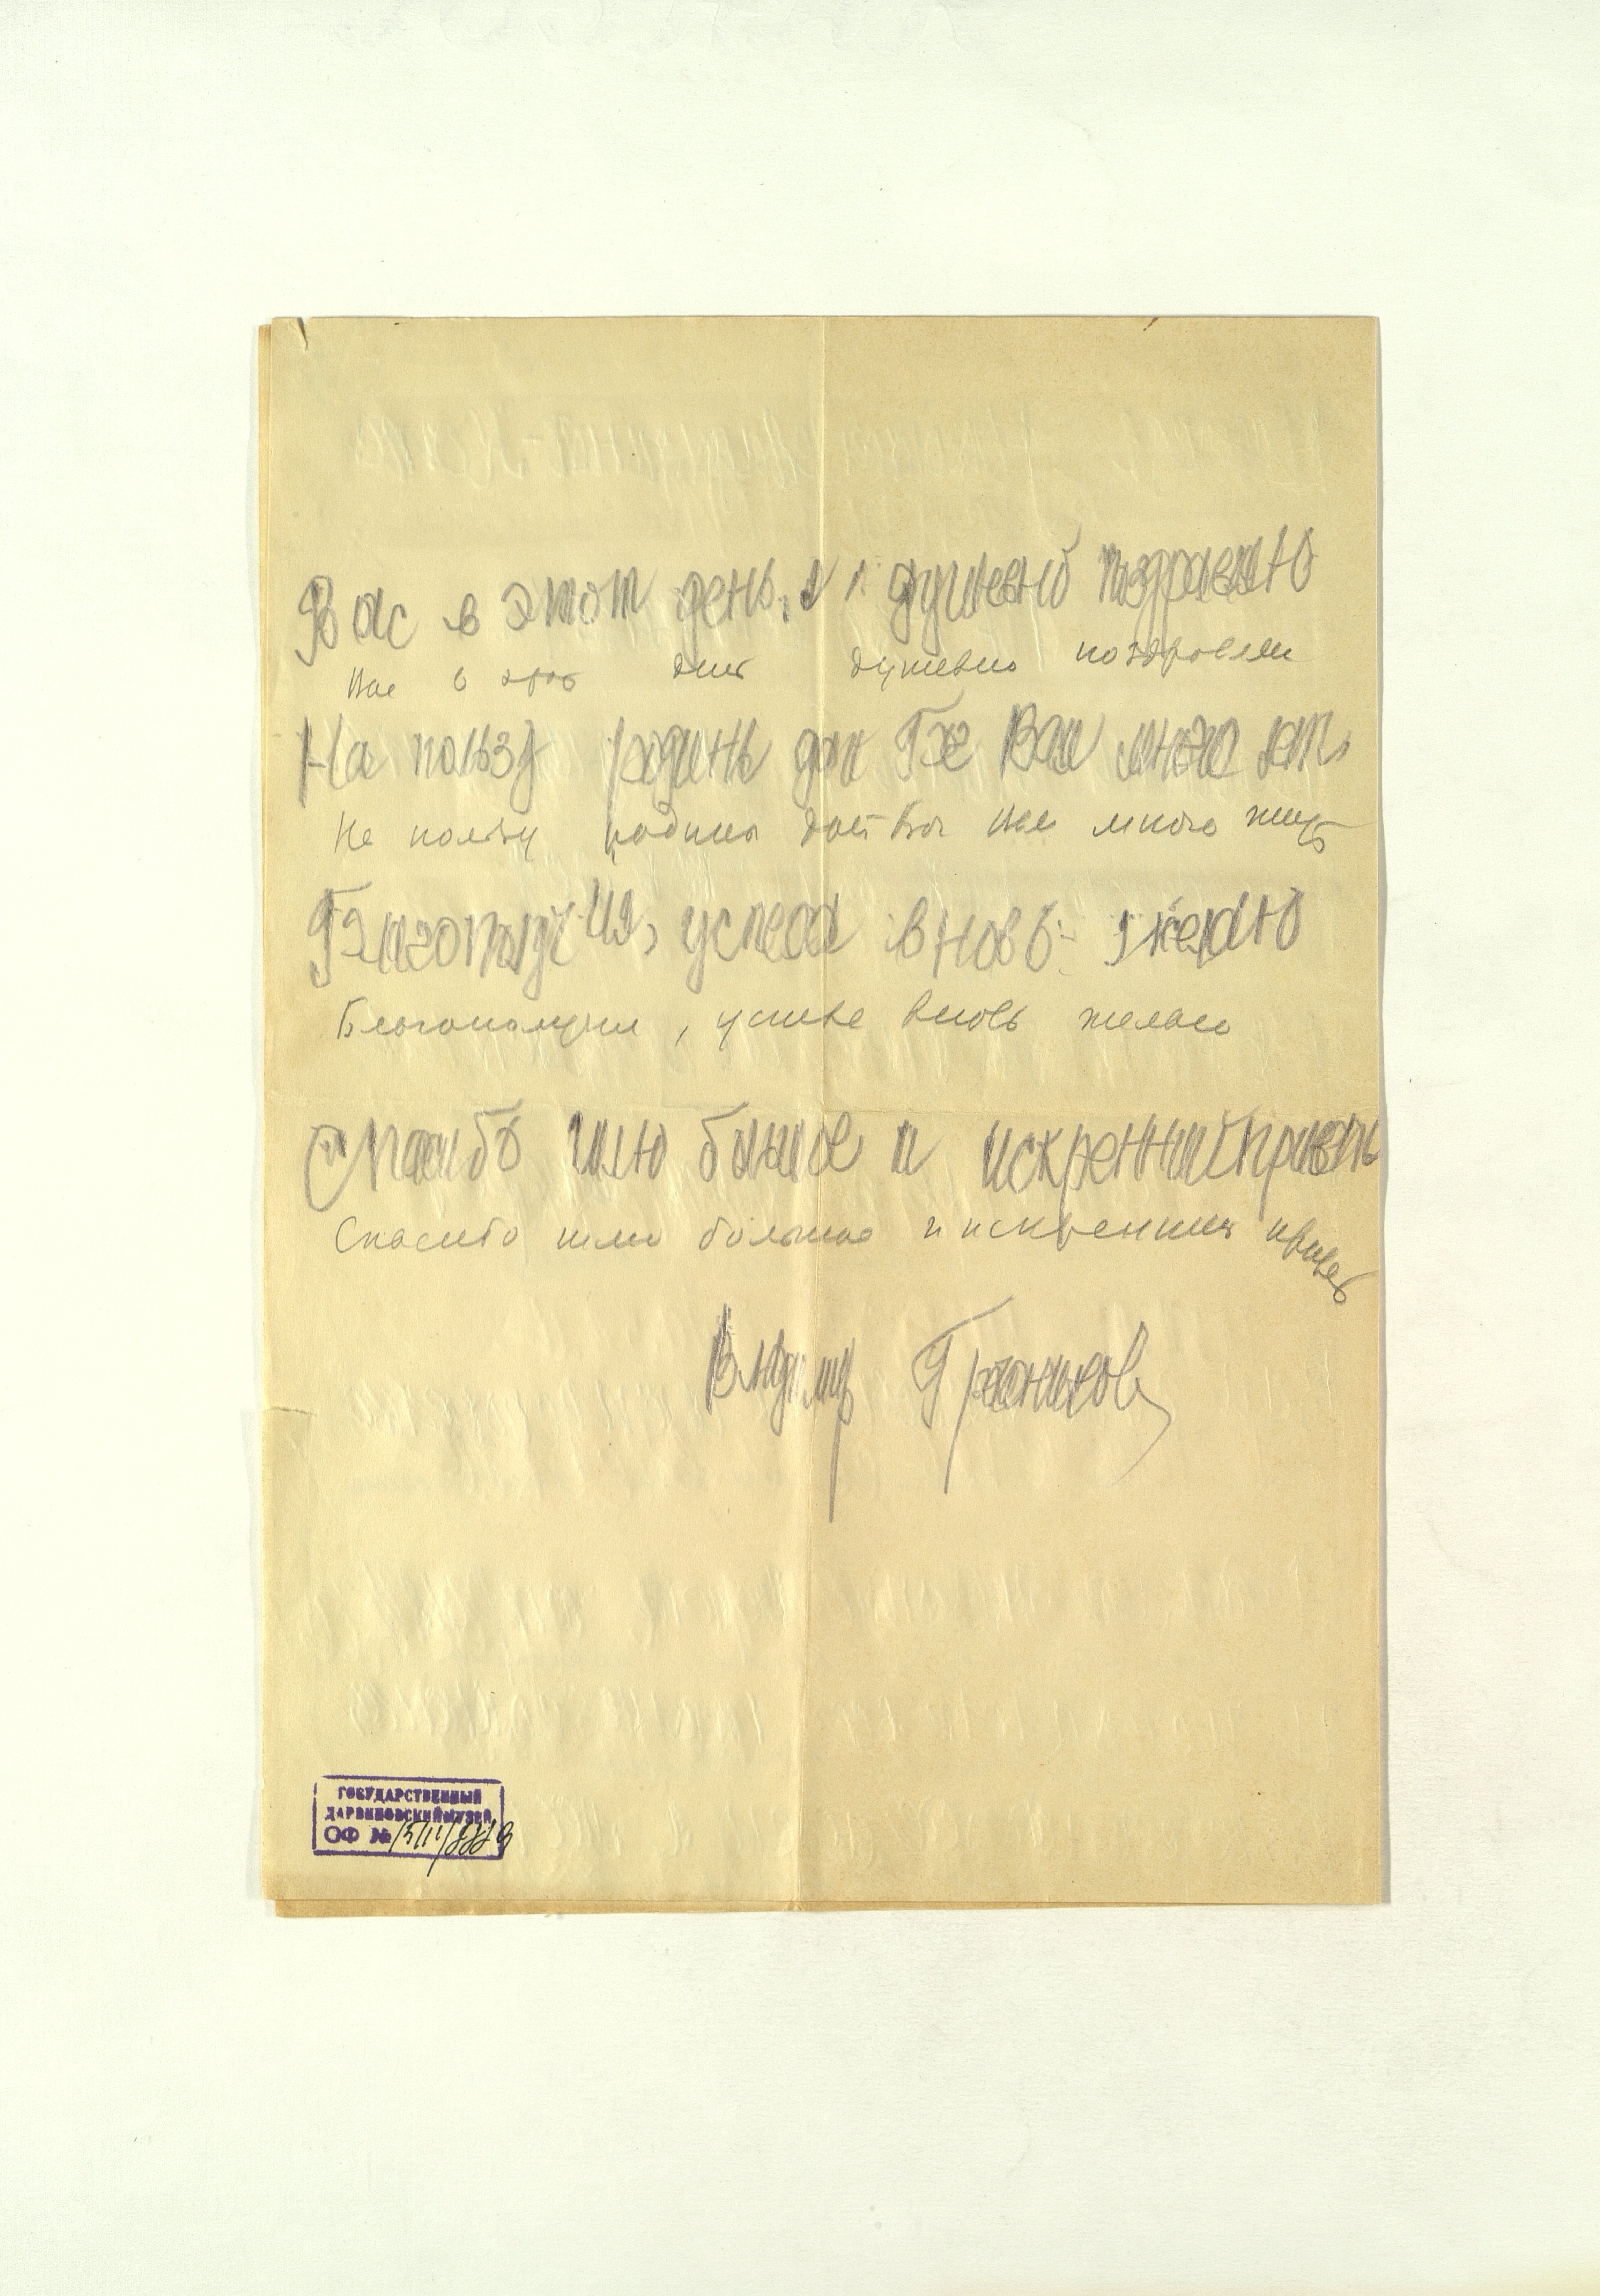 Вас в этот день душевно поздравляю
Вас в этот день душевно поздравляю
На пользу родины дай Бог Вам много лет
На пользу родины дай Бог Вам много жить
Благополучия, успеха вновь желаю
Благополучия, успеха вновь желаю
Спасибо шлю большое и искренний привет
Спасибо шлю большое и искренний привет
Владимир
ГОСУДАРСТВЕННЫЙ
ДАРВИНОВСКИЙ МУЗЕЙ
ОФ №